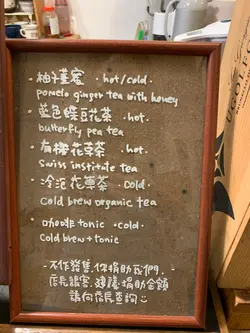 柚子薑蜜 · hot/cold.
pomelo ginger tea with honey
藍色蝶豆花茶 · hot.
butterfly pea tea
有機花草茶 · hot.
Swiss institute tea
冷泡花草茶 · cold.
Cold brew organic tea
咖啡 tonic · cold.
Cold brew + tonic
~不作發售,作捐助我們,
店長讓客,建議捐助金額
請向店長查詢